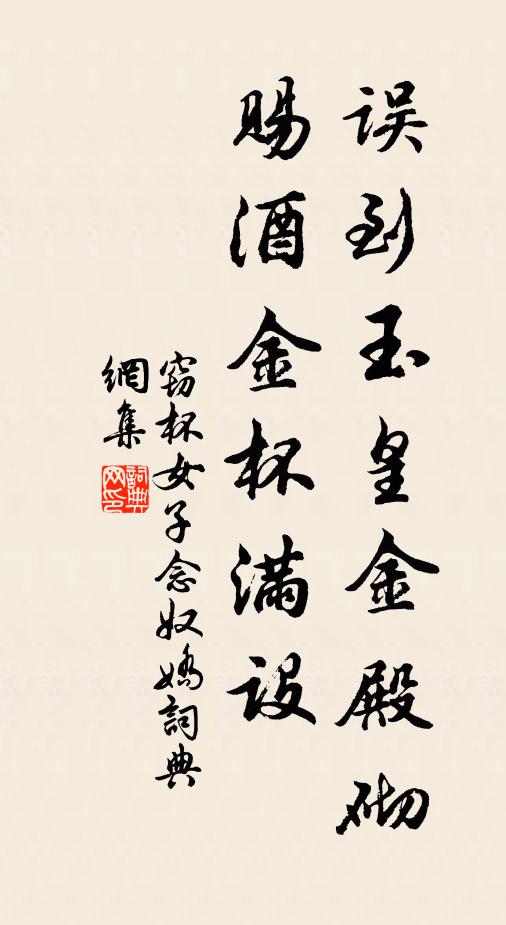 误到玉皇金殿砌
赐酒金杯满设
窃杯女子念奴娇詞典
網集
詞典
网印